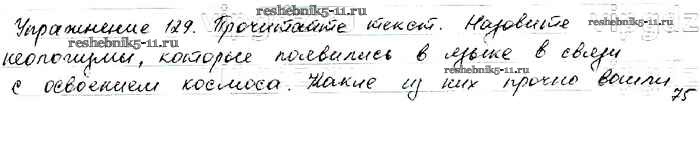 Упражнение 129. Прочитайте текст. Назовите
reshebnik5-11.ru
reshebnik5-11.ru
неологизмы, которые появились в языке в связи
reshebnik5-11.ru
с освоением космоса. Какие из них прочно вошли
75